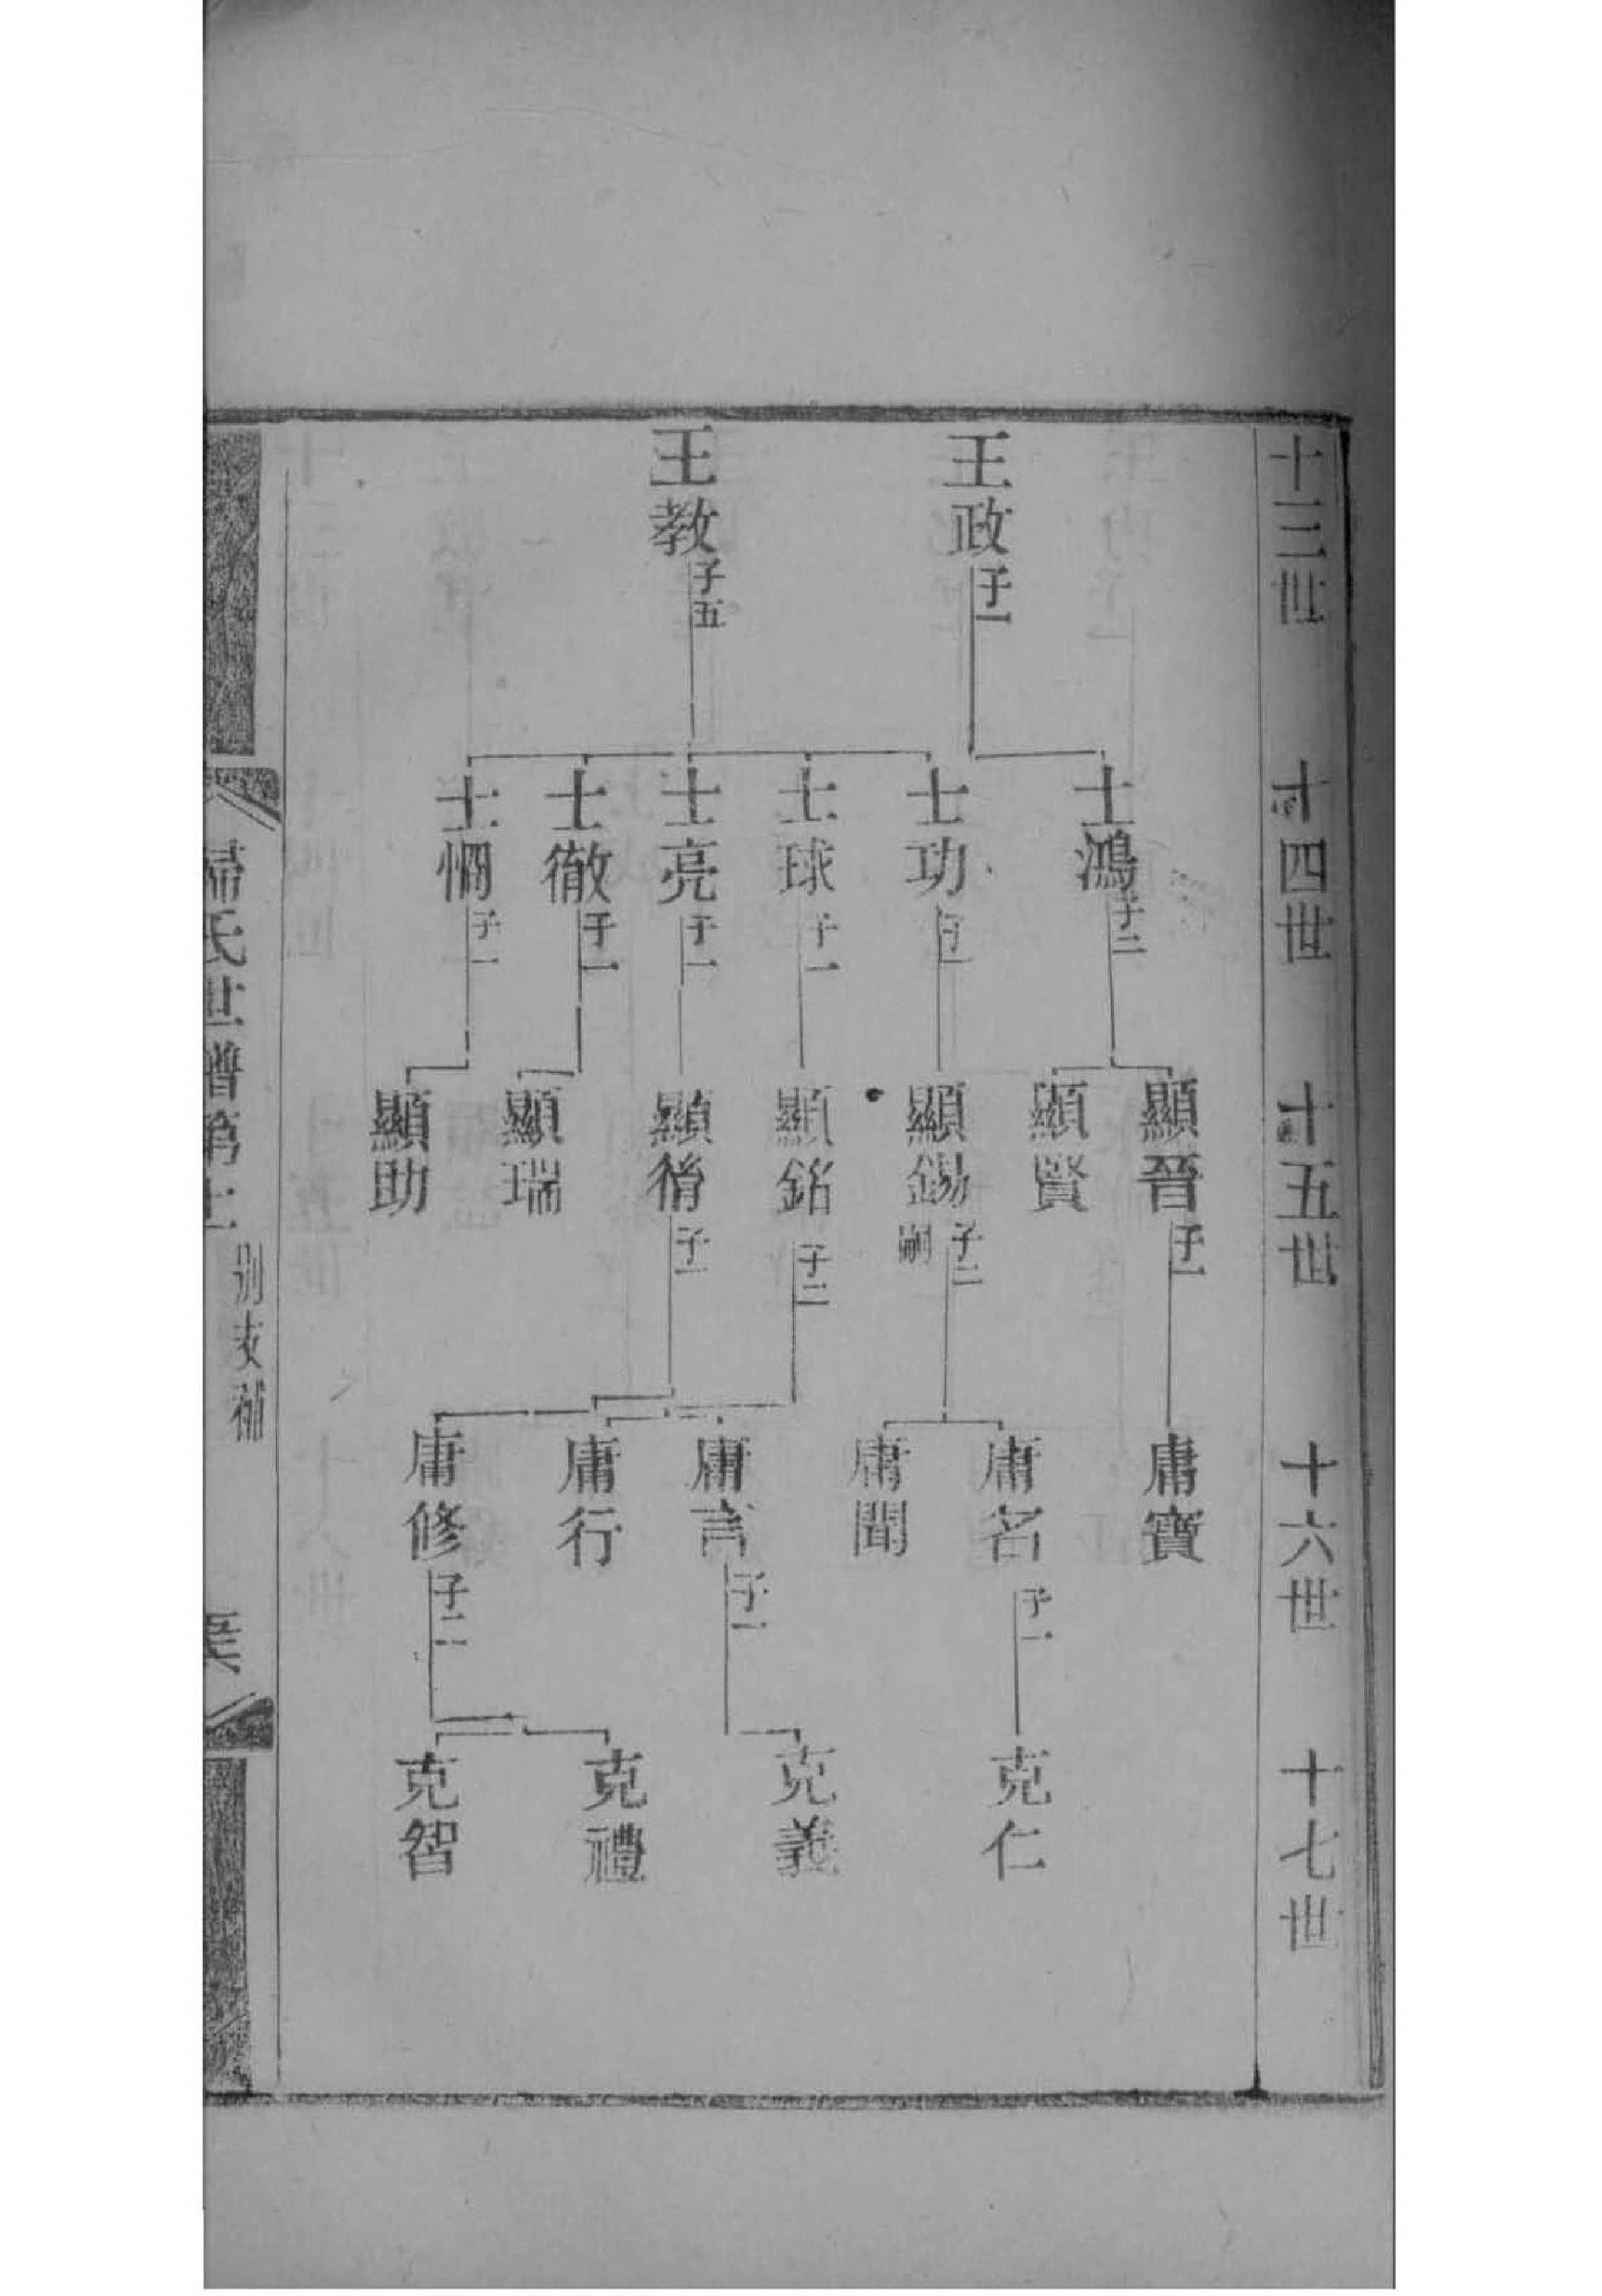 十三世
十四世
十五世
十六世
十七世
王政 子一
王教 子五
士鴻 子二
士功 子一
士球 子一
士亮 子一
士徹 子一
士憪 子一
顯晉 子一
顯賢
顯錫 子二 嗣
顯銘 子二
顯脩 子一
顯瑞
顯助
庸寶
庸名 子一
庸聞
庸言 子一
庸行
庸修 子二
克仁
克義
克禮
克智
歸氏世譜第
別支補